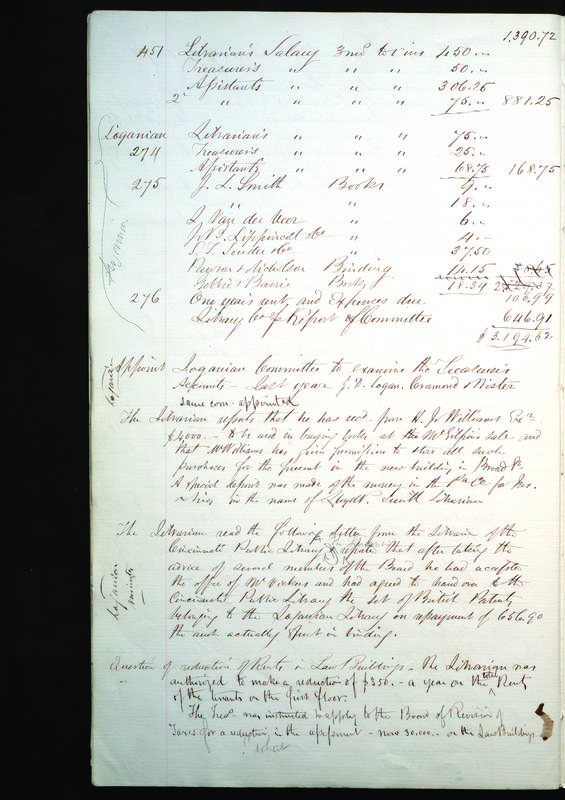 1,390.72
451 Librarian's Salary 3 mos to 1 ins 450.
Treasurer's " " " 50.
Assistants " " " 306.25
2d " " " " 75. 881.25
Loganian Librarian's " " " 75.
274 Treasurer's " " " 25.
Assistant's " " " 68.75 168.75
275 J. L. Smith Books 9.
" " 18.
J. Van der Veer " 6.
J. B. Lippincott & Co " 4.
S. T. Souder & Co " 37.50
Pawson & Nicholson Binding 14.15
Porter Books 18.34
276 One year's rent and Expences due 106.99
Library Co of Report of Committee 646.91
$3,194.62
Loganian
Appoint Loganian Committee to examine the Treasurer's
Accounts - Last year J. D. Logan. Cramond Mister
same com. appointed
The Librarian reports that he has recd. from H. J. Williams Exr
$4000 - to be used in buying books at the Mr Gilpin's sale and
that Mr Williams has given permission to store all such
purchases for the present in the new building in Broad St
A special deposit was made of the money in the Pa Co for Ins.
in the name of Lloyd P. Smith Librarian
The Librarian read the following letter from the Librarian of the
Cincinnati Public Library & reported that after taking the
advice of several members of the Board he had accepted
the offer of Mr Vickers and had agreed to hand over to the
Cincinnati Public Library the set of British Patents
belonging to the Loganian Library on repayment of 656.90
the amt actually spent in binding.
Loganian
minutes
Question of reduction of Rents in Law Buildings - The Librarian was
authorized to make a reduction of $350. - a year on the total Rent
of the tenants on the first floor.
The Treasr was instructed to apply to the Board of Revision of
Taxes for a reduction in the assessment - now 30.000 - on the Law Buildings
what